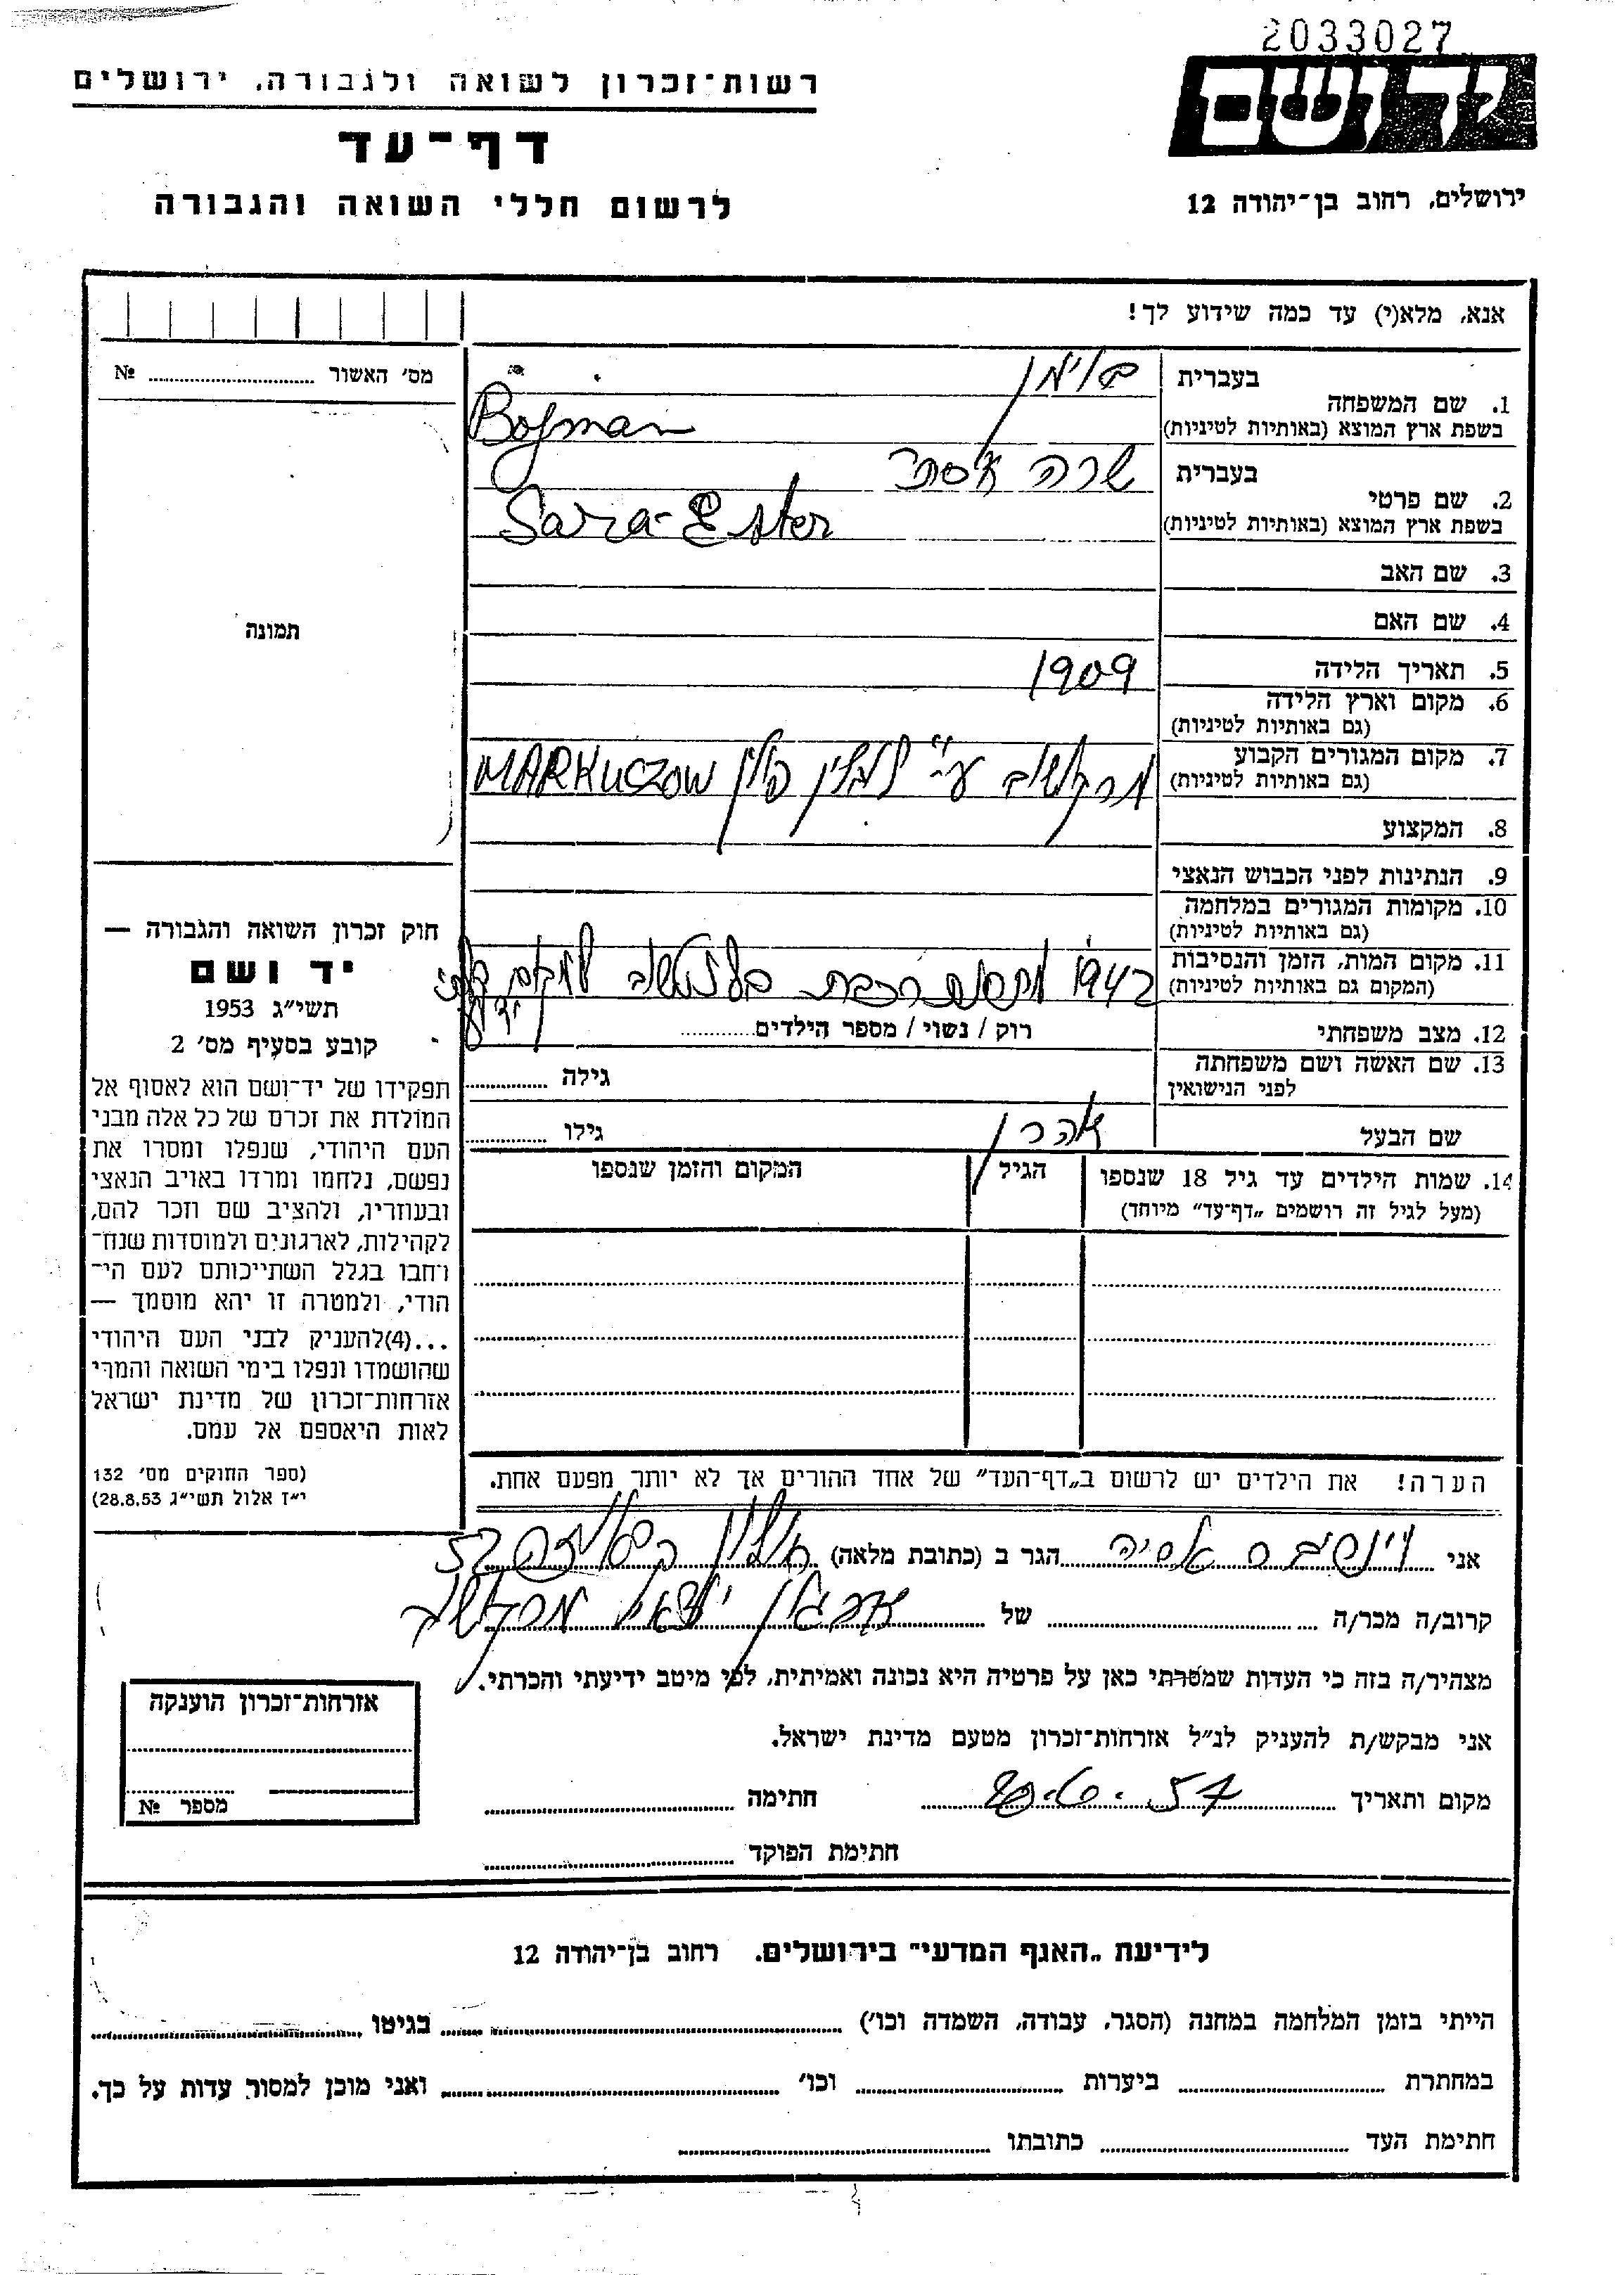 2033027
יד ושם
ירושלים, רחוב בן־יהודה 12
רשות־זכרון לשואה ולגבורה, ירושלים
דף־עד
לרשום חללי השואה והגבורה
אנא, מלא(י) עד כמה שידוע לך!
מס׳ האשור № 
תמונה
1. שם המשפחה
בעברית בוימן
בשפת ארץ המוצא (באותיות לטיניות) Bojman
2. שם פרטי
בעברית שרה אסתר
בשפת ארץ המוצא (באותיות לטיניות) Sara-Ester
3. שם האב
4. שם האם
5. תאריך הלידה 1909
6. מקום וארץ הלידה
(גם באותיות לטיניות)
7. מקום המגורים הקבוע
(גם באותיות לטיניות) מרקושוב ע״י לובלין פולין MARKUCZOW
8. המקצוע
9. הנתינות לפני הכבוש הנאצי
10. מקומות המגורים במלחמה
(גם באותיות לטיניות)
11. מקום המות, הזמן והנסיבות
(המקום גם באותיות לטיניות) 1942 רכבת למקום בלתי
ידוע
12. מצב משפחתי רוק / נשוי / מספר הילדים
13. שם האשה ושם משפחתה
לפני הנישואין גילה
שם הבעל אהרן גילו
14. שמות הילדים עד גיל 18 שנספו הגיל המקום והזמן שנספו
(מעל לגיל זה רושמים „דף־עד״ מיוחד)
הערה! את הילדים יש לרשום ב„דף־העד״ של אחד ההורים אך לא יותר מפעם אחת.
חוק זכרון השואה והגבורה —
יד ושם
תשי״ג 1953
קובע בסעיף מס׳ 2
תפקידו של יד־ושם הוא לאסוף אל
המולדת את זכרם של כל אלה מבני
העם היהודי, שנפלו ומסרו את
נפשם, נלחמו ומרדו באויב הנאצי
ובעוזריו, ולהציב שם וזכר להם,
לקהילות, לארגונים ולמוסדות שנח־
רבו בגלל השתייכותם לעם הי־
הודי, ולמטרה זו יהא מוסמך —
...(4)להעניק לבני העם היהודי
שהושמדו ונפלו בימי השואה והמרי
אזרחות־זכרון של מדינת ישראל
לאות היאספם אל עמם.
(ספר החוקים מס׳ 132
י״ז אלול תשי״ג 28.8.53)
אני אסיה הגר ב (כתובת מלאה) חולון 52
קרוב/ה מכר/ה של ארגון יוצאי מרקושוב
מצהיר/ה בזה כי העדות שמסרתי כאן על פרטיה היא נכונה ואמיתית, לפי מיטב ידיעתי והכרתי.
אני מבקש/ת להעניק לנ״ל אזרחות־זכרון מטעם מדינת ישראל.
מקום ותאריך חתימה
חתימת הפוקד
אזרחות־זכרון הוענקה
מספר №
לידיעת „האגף המדעי״ בירושלים. רחוב בן־יהודה 12
הייתי בזמן המלחמה במחנה (הסגר, עבודה, השמדה וכו׳) בגיטו
במחתרת ביערות וכו׳ ואני מוכן למסור עדות על כך.
חתימת העד כתובתו